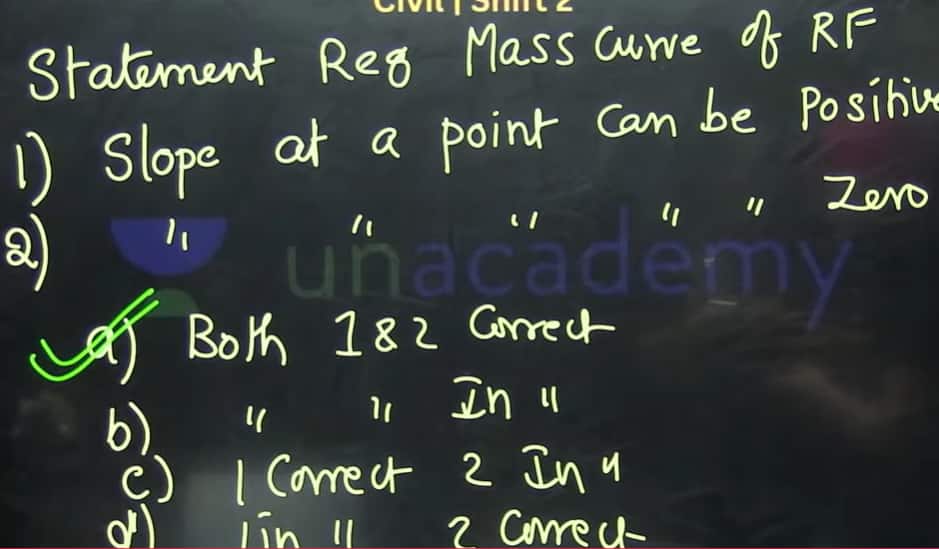 Civil | Shift 2
Statement Reg Mass Curve of RF
1) Slope at a point can be Positive
2) " " " " " Zero
unacademy
a) Both 1 & 2 Correct
b) " " In "
c) 1 Correct 2 In "
d) 1 in " 2 Correct